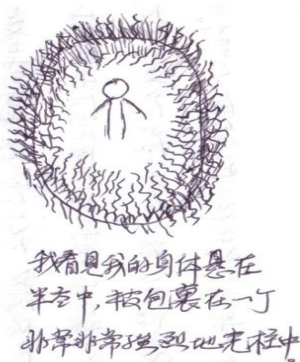 我看見我的身体悬在
半空中，被包裹在一个
非常非常强烈地光柱中